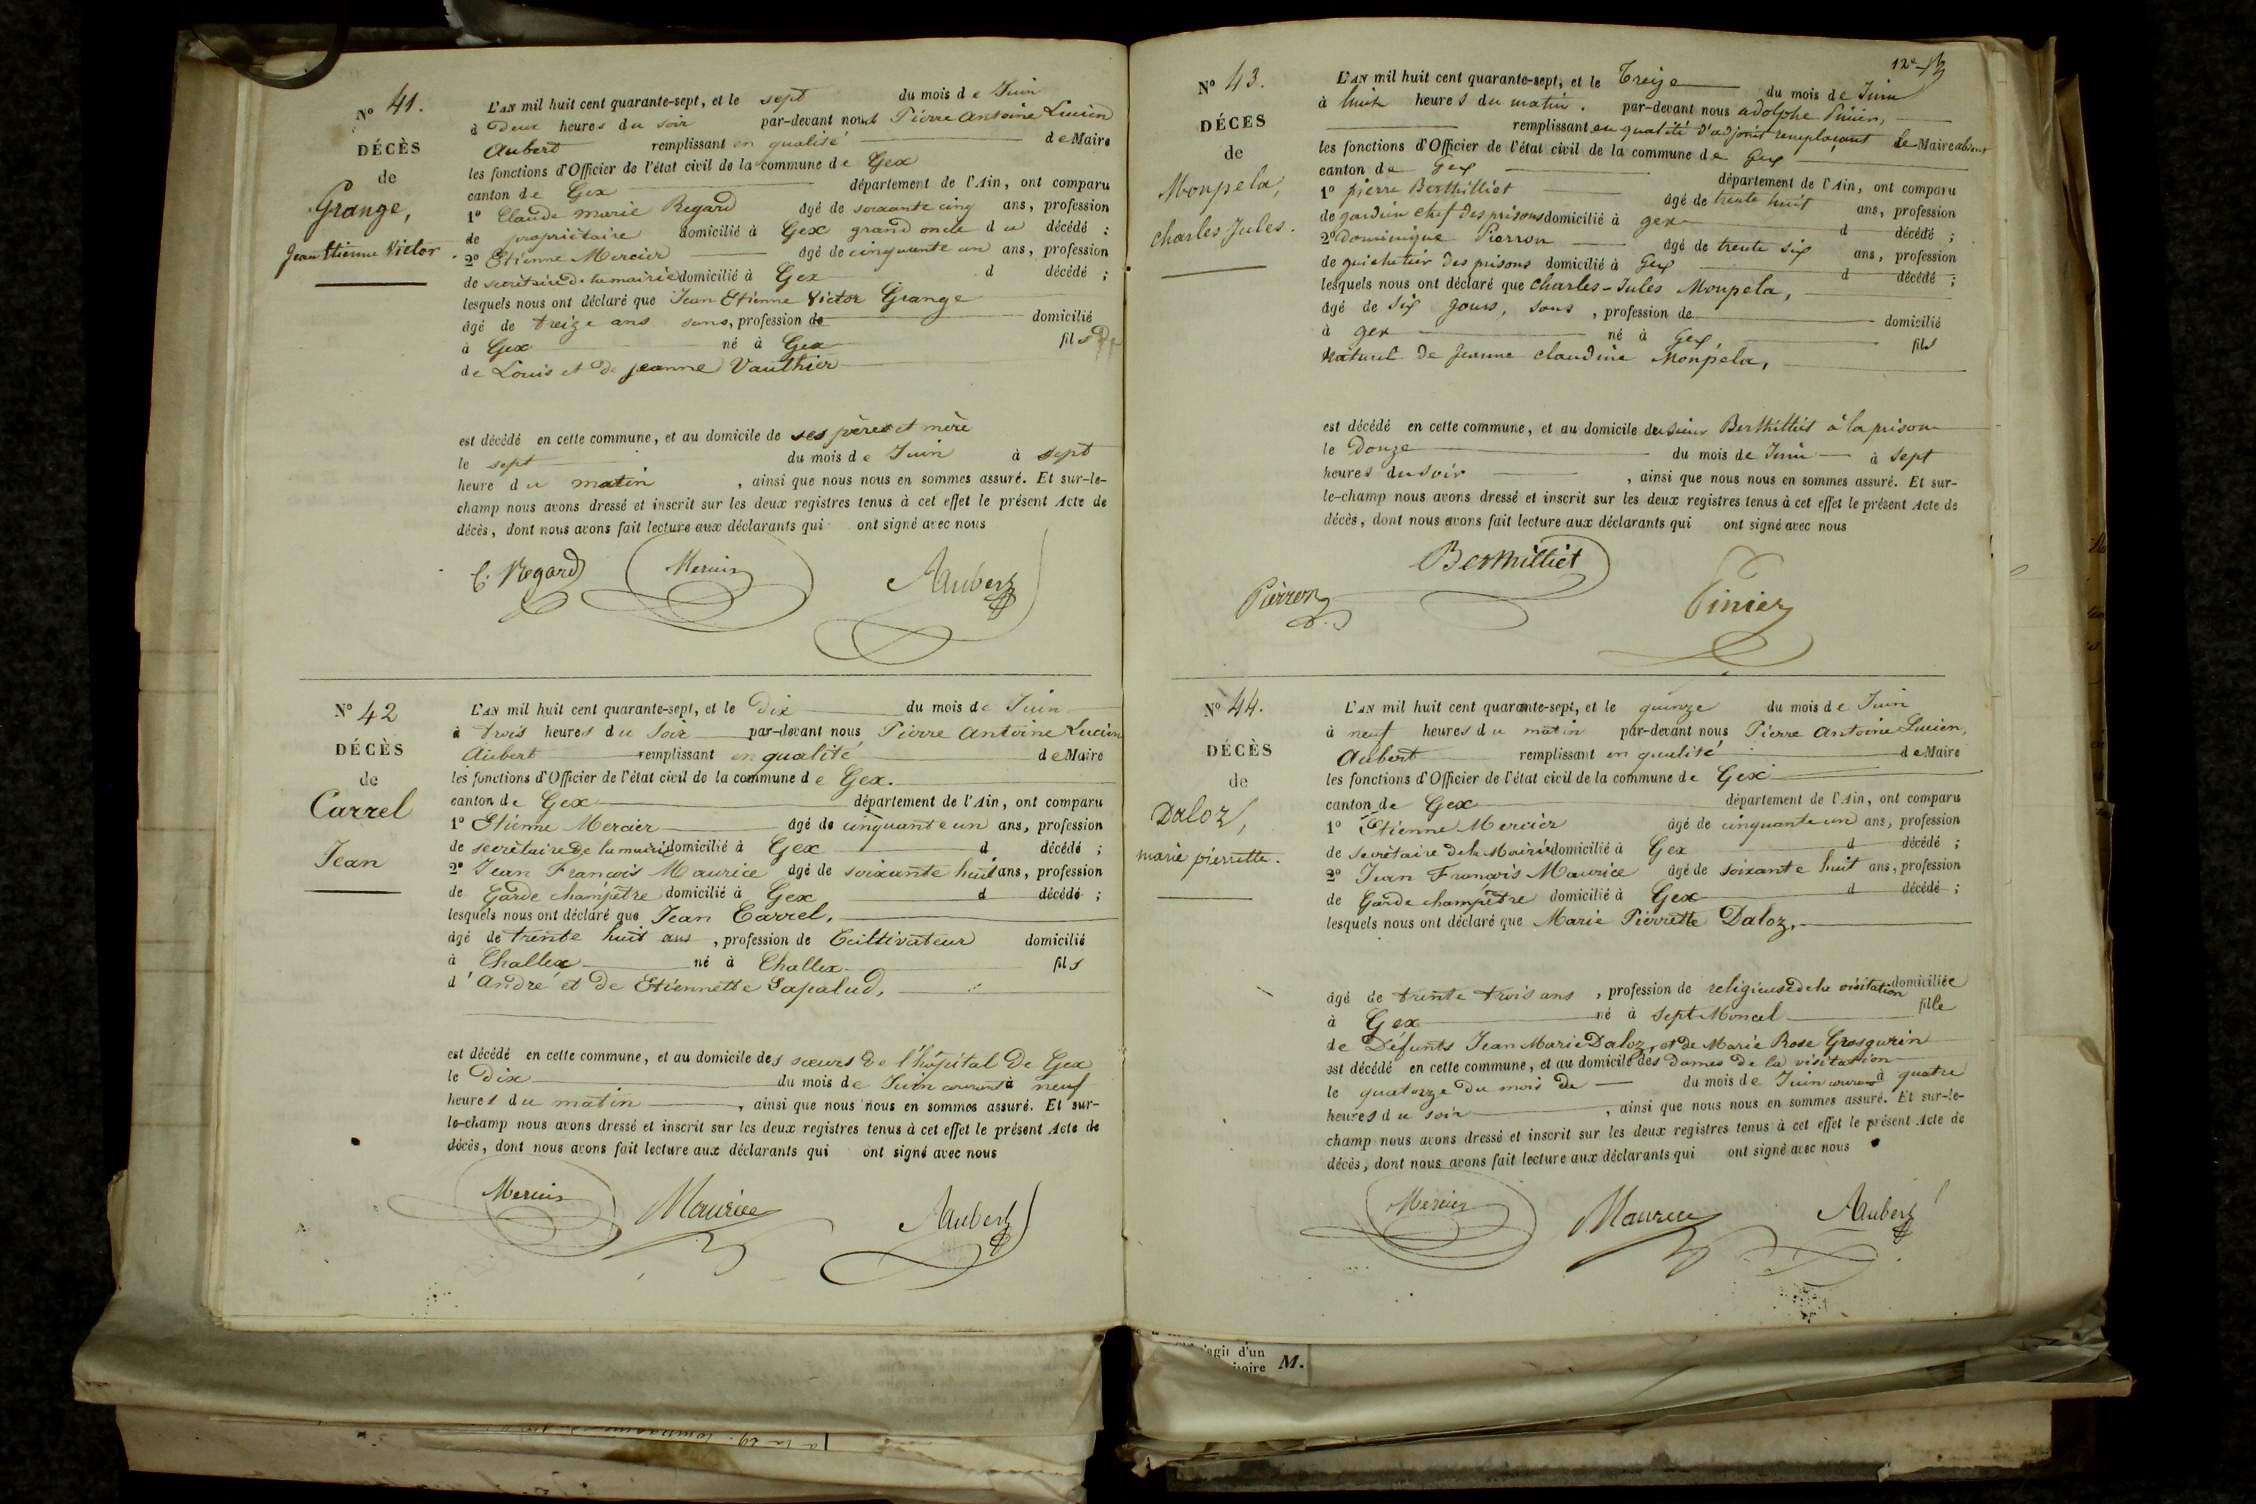 N° 41.
DÉCÈS
de
Grange,
Jean Etienne Victor.
L'AN mil huit cent quarante-sept, et le sept du mois de Juin
à deux heures du soir par-devant nous Pierre Antoine Lucien
Aubert remplissant en qualité de Maire
les fonctions d'Officier de l'état civil de la commune de Gex
canton de Gex département de l'Ain, ont comparu
1° Claude marie Regard âgé de soixante cinq ans, profession
de propriétaire domicilié à Gex grand oncle du décédé ;
2° Etienne Mercier âgé de cinquante un ans, profession
de secrétaire de la mairie domicilié à Gex d décédé ;
lesquels nous ont déclaré que Jean Etienne Victor Grange
âgé de treize ans sans, profession de domicilié
à Gex né à Gex fils
de Louis et de jeanne Vauthier
est décédé en cette commune, et au domicile de ses père et mère
le sept du mois de Juin à sept
heure du matin, ainsi que nous nous en sommes assuré. Et sur-le-
champ nous avons dressé et inscrit sur les deux registres tenus à cet effet le présent Acte de
décès, dont nous avons fait lecture aux déclarants qui ont signé avec nous
C. Regard Mercier Aubert
N° 42
DÉCÈS
de
Carrel
Jean
L'AN mil huit cent quarante-sept, et le Dix du mois de Juin
à trois heures du Soir par-devant nous Pierre Antoine Lucien
Aubert remplissant en qualité de Maire
les fonctions d'Officier de l'état civil de la commune de Gex.
canton de Gex département de l'Ain, ont comparu
1° Etienne Mercier âgé de cinquante un ans, profession
de secrétaire de la mairie domicilié à Gex d décédé ;
2° Jean François Maurice âgé de soixante huit ans, profession
de Garde champêtre domicilié à Gex d décédé ;
lesquels nous ont déclaré que Jean Carrel,
âgé de trente huit ans, profession de Cultivateur domicilié
à Challex né à Challex fils
d'André et de Etiennette Lapalud,
est décédé en cette commune, et au domicile des soeurs de l'hôpital de Gex
le Dix du mois de Juin courant à neuf
heures du matin, ainsi que nous nous en sommes assuré. Et sur-
le-champ nous avons dressé et inscrit sur les deux registres tenus à cet effet le présent Acte de
décès, dont nous avons fait lecture aux déclarants qui ont signé avec nous
Mercier Maurice Aubert
12e
N° 43.
DÉCES
de
Monpela,
charles-Jules.
L'AN mil huit cent quarante-sept, et le Treize du mois de Juin
à huit heures du matin. par-devant nous adolphe Pinier,
remplissant en qualité d'adjoint remplaçant le Maire absent
les fonctions d'Officier de l'état civil de la commune de Gex
canton de Gex département de l'Ain, ont comparu
1° pierre Berthilliet âgé de trente huit ans, profession
de gardien chef des prisons domicilié à gex d décédé ;
2° Dominique Pierron âgé de trente six ans, profession
de guichetier des prisons domicilié à Gex d décédé ;
lesquels nous ont déclaré que Charles-Jules Monpela,
âgé de six jours, sans, profession de domicilié
à gex né à Gex, fils
naturel de Jeanne claudine Monpéla,
est décédé en cette commune, et au domicile du sieur Berthilliet à la prison
le Douze du mois de Juin à sept
heures du soir, ainsi que nous nous en sommes assuré. Et sur-
le-champ nous avons dressé et inscrit sur les deux registres tenus à cet effet le présent Acte de
décès, dont nous avons fait lecture aux déclarants qui ont signé avec nous
Pierron Berthilliet Pinier
N° 44.
DÉCÈS
de
Daloz,
marie pierrette.
L'AN mil huit cent quarante-sept, et le quinze du mois de Juin
à neuf heures du matin par-devant nous Pierre Antoine Lucien,
Aubert remplissant en qualité de Maire
les fonctions d'Officier de l'état civil de la commune de Gex
canton de Gex département de l'Ain, ont comparu
1° Etienne Mercier âgé de cinquante un ans, profession
de secrétaire de la Mairie domicilié à Gex d décédé ;
2° Jean François Maurice âgé de soixante huit ans, profession
de Garde champêtre domicilié à Gex d décédé ;
lesquels nous ont déclaré que Marie Pierrette Daloz,
âgé de trente trois ans, profession de religieuse de la visitation domiciliée
à Gex né à Sept Moncel fille
de Défunts Jean Marie Daloz, et de Marie Rose Grosgurin
est décédé en cette commune, et au domicile des dames de la visitation
le quatorze du mois de du mois de Juin courant à quatre
heures du soir, ainsi que nous nous en sommes assuré. Et sur-le-
champ nous avons dressé et inscrit sur les deux registres tenus à cet effet le présent Acte de
décès, dont nous avons fait lecture aux déclarants qui ont signé avec nous
Mercier Maurice Aubert
s'agit d'un
M.